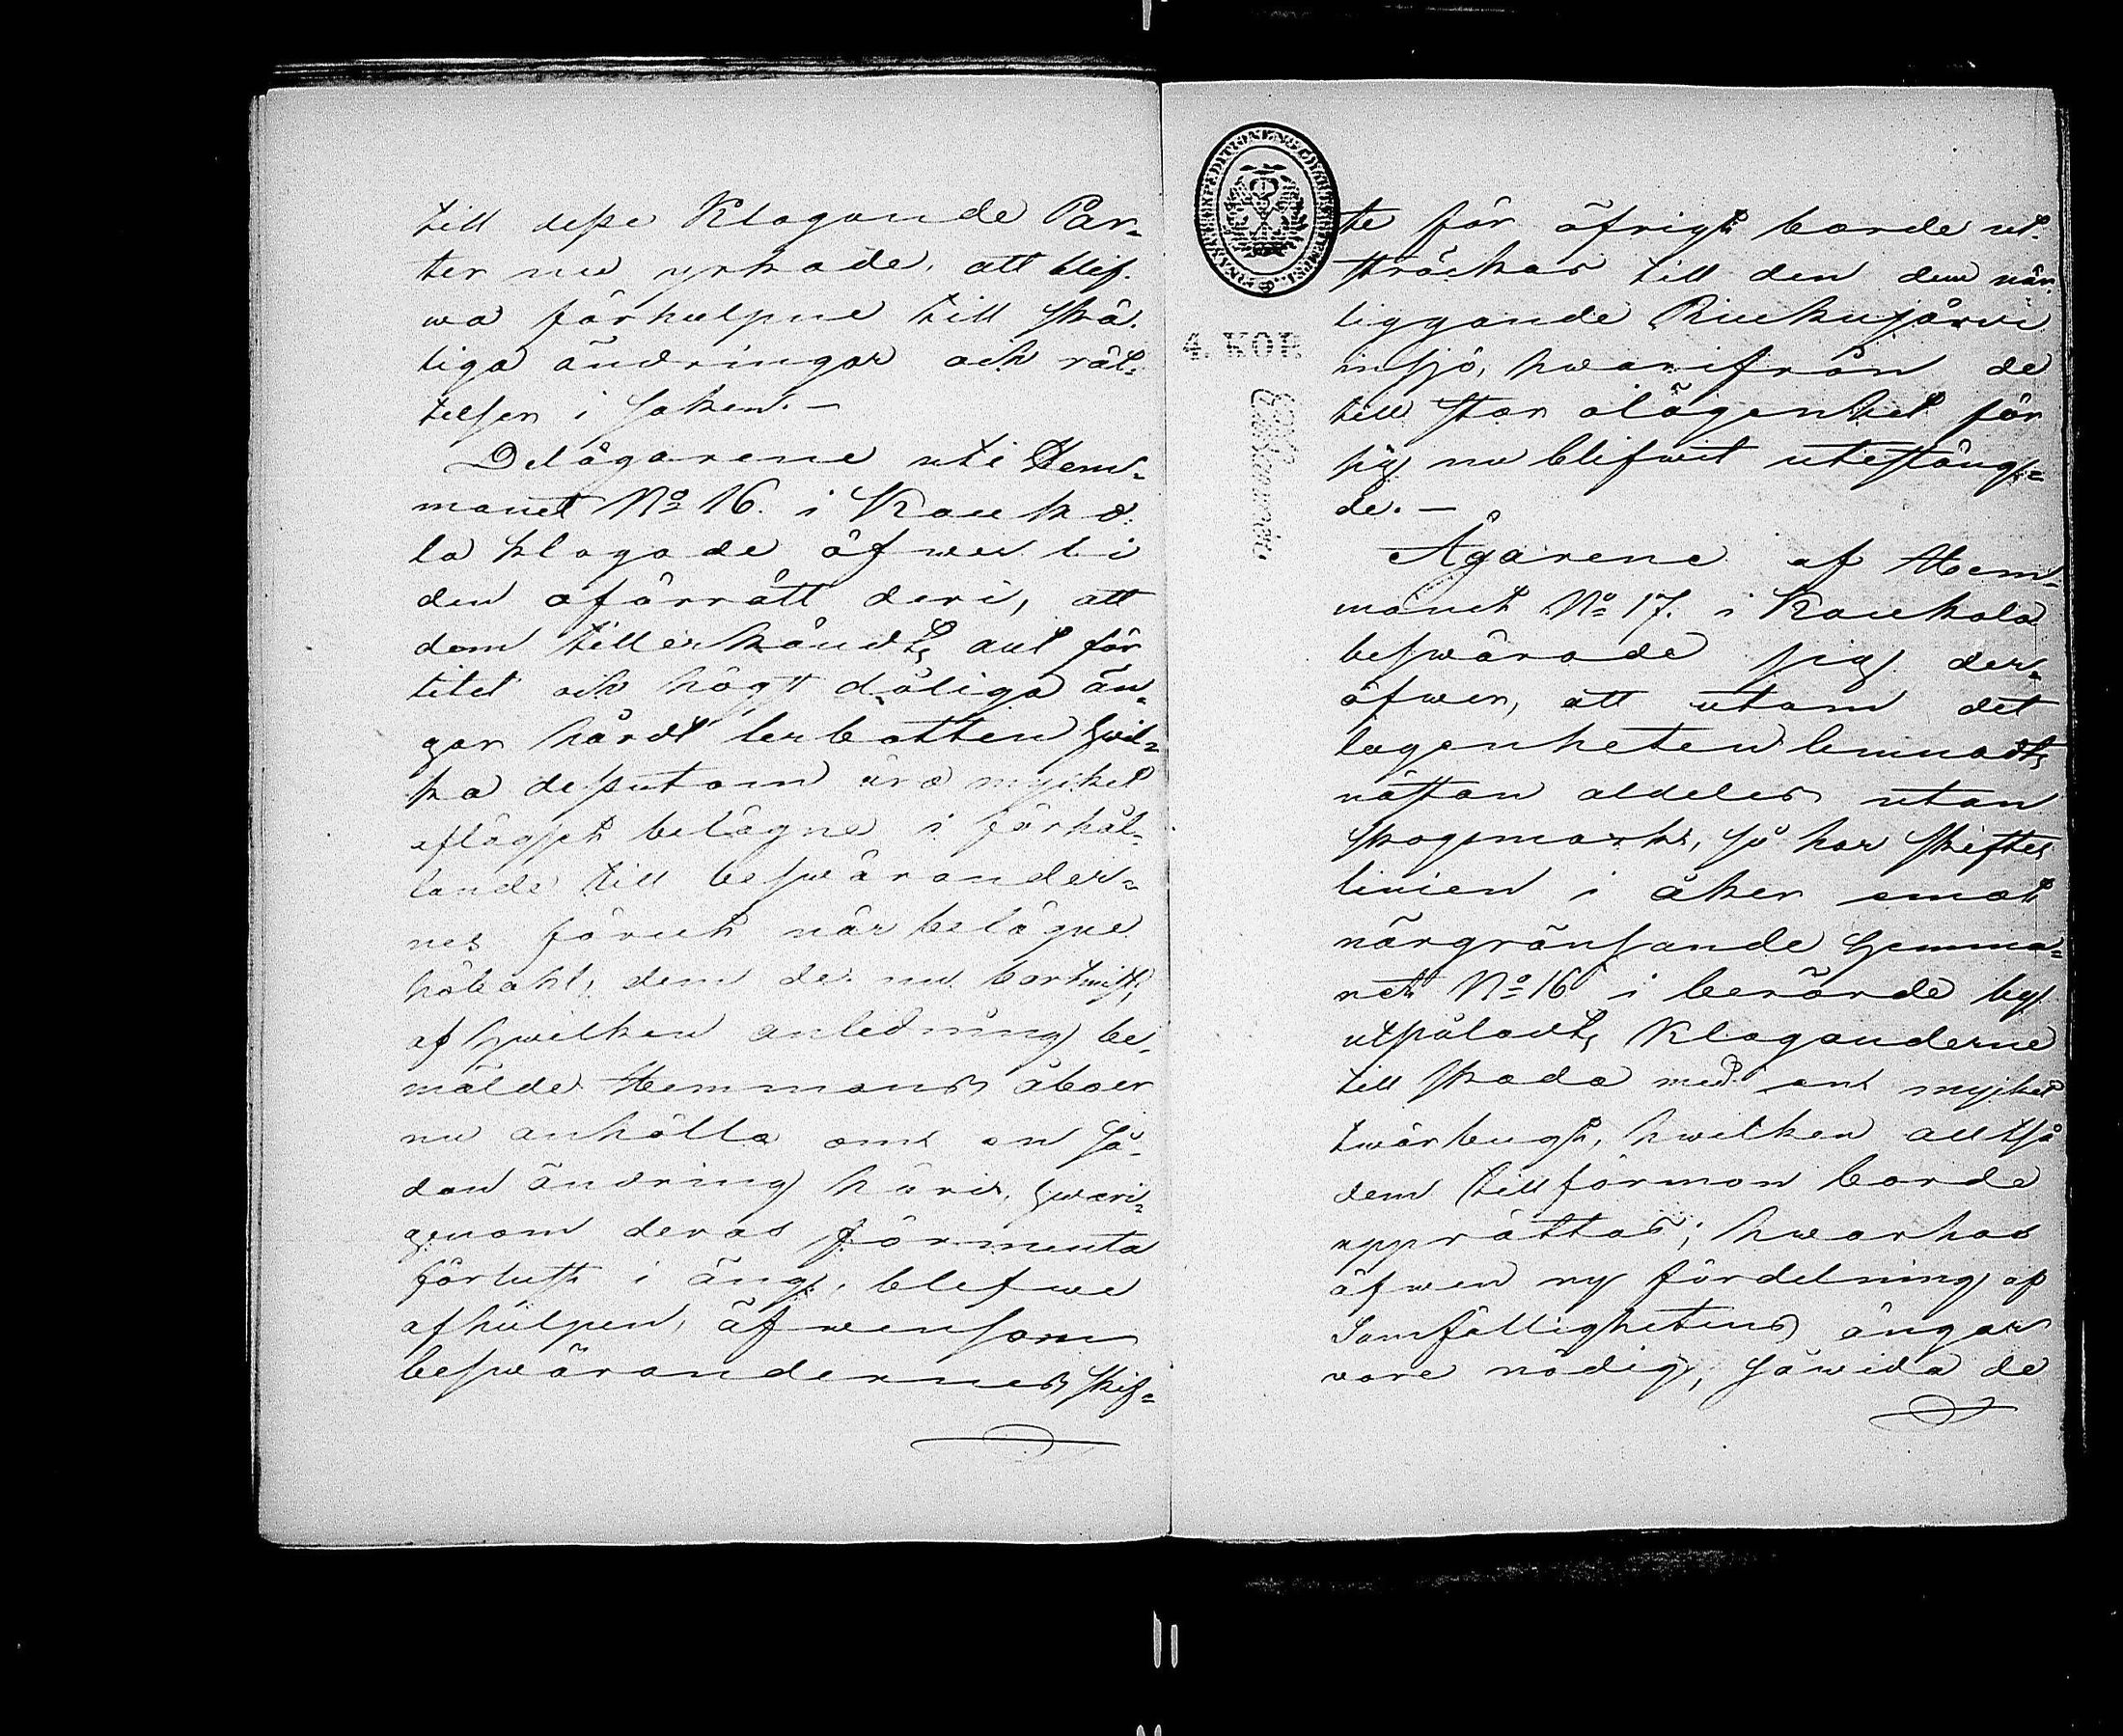 till desse Klagande Par-
ter nu yrkade, att blif-
wa förhulpne till skä-
liga ändringar och rät-
telser i saken. —
Delägarene uti Hem-
manet No 16. i Kauko-
la klagade öfwer li
den oförrätt deri, att
dem tillerkändts allt för
litet och högst dåliga än-
gar hårdt lerbotten hwil-
ka dessutom äro mycket
aflägset belägne i förhål-
lande till beswärander-
nes förut när belägne
höbohl, dem de nu bortmist,
af hwilken anledning be-
mälde Hemmans åboer
nu anhålla om en så-
dan ändring häri, hwari-
genom deras förmenta
förlust i äng, blefwe
afhulpen, äfwensom
beswärandernes skif-
te för öfrigt borde ut-
sträckas till den dem när
liggande Riukujärwi
insjö, hwarifrån de
till stor olägenhet för
sig nu blifwit utestäng-
de. —
Ägarene af Hem-
manet No 17. i Kaukola
beswärade sig der-
öfwer, att utom det
lägenheten lemnadts
nästan aldeles utan
skogsmark, så har skiftes
linien i åker emot
närgränsande Hemma-
net No 16 i berörde by
utpålats Klaganderne
till skada med en mycket
twär bugt, hwilken alltså
dem till förmon borde
upprättas; hwarhos
äfwen ny fördelning af
Samfällighetens ängar
vore nödig, såwida de
4. KOP.